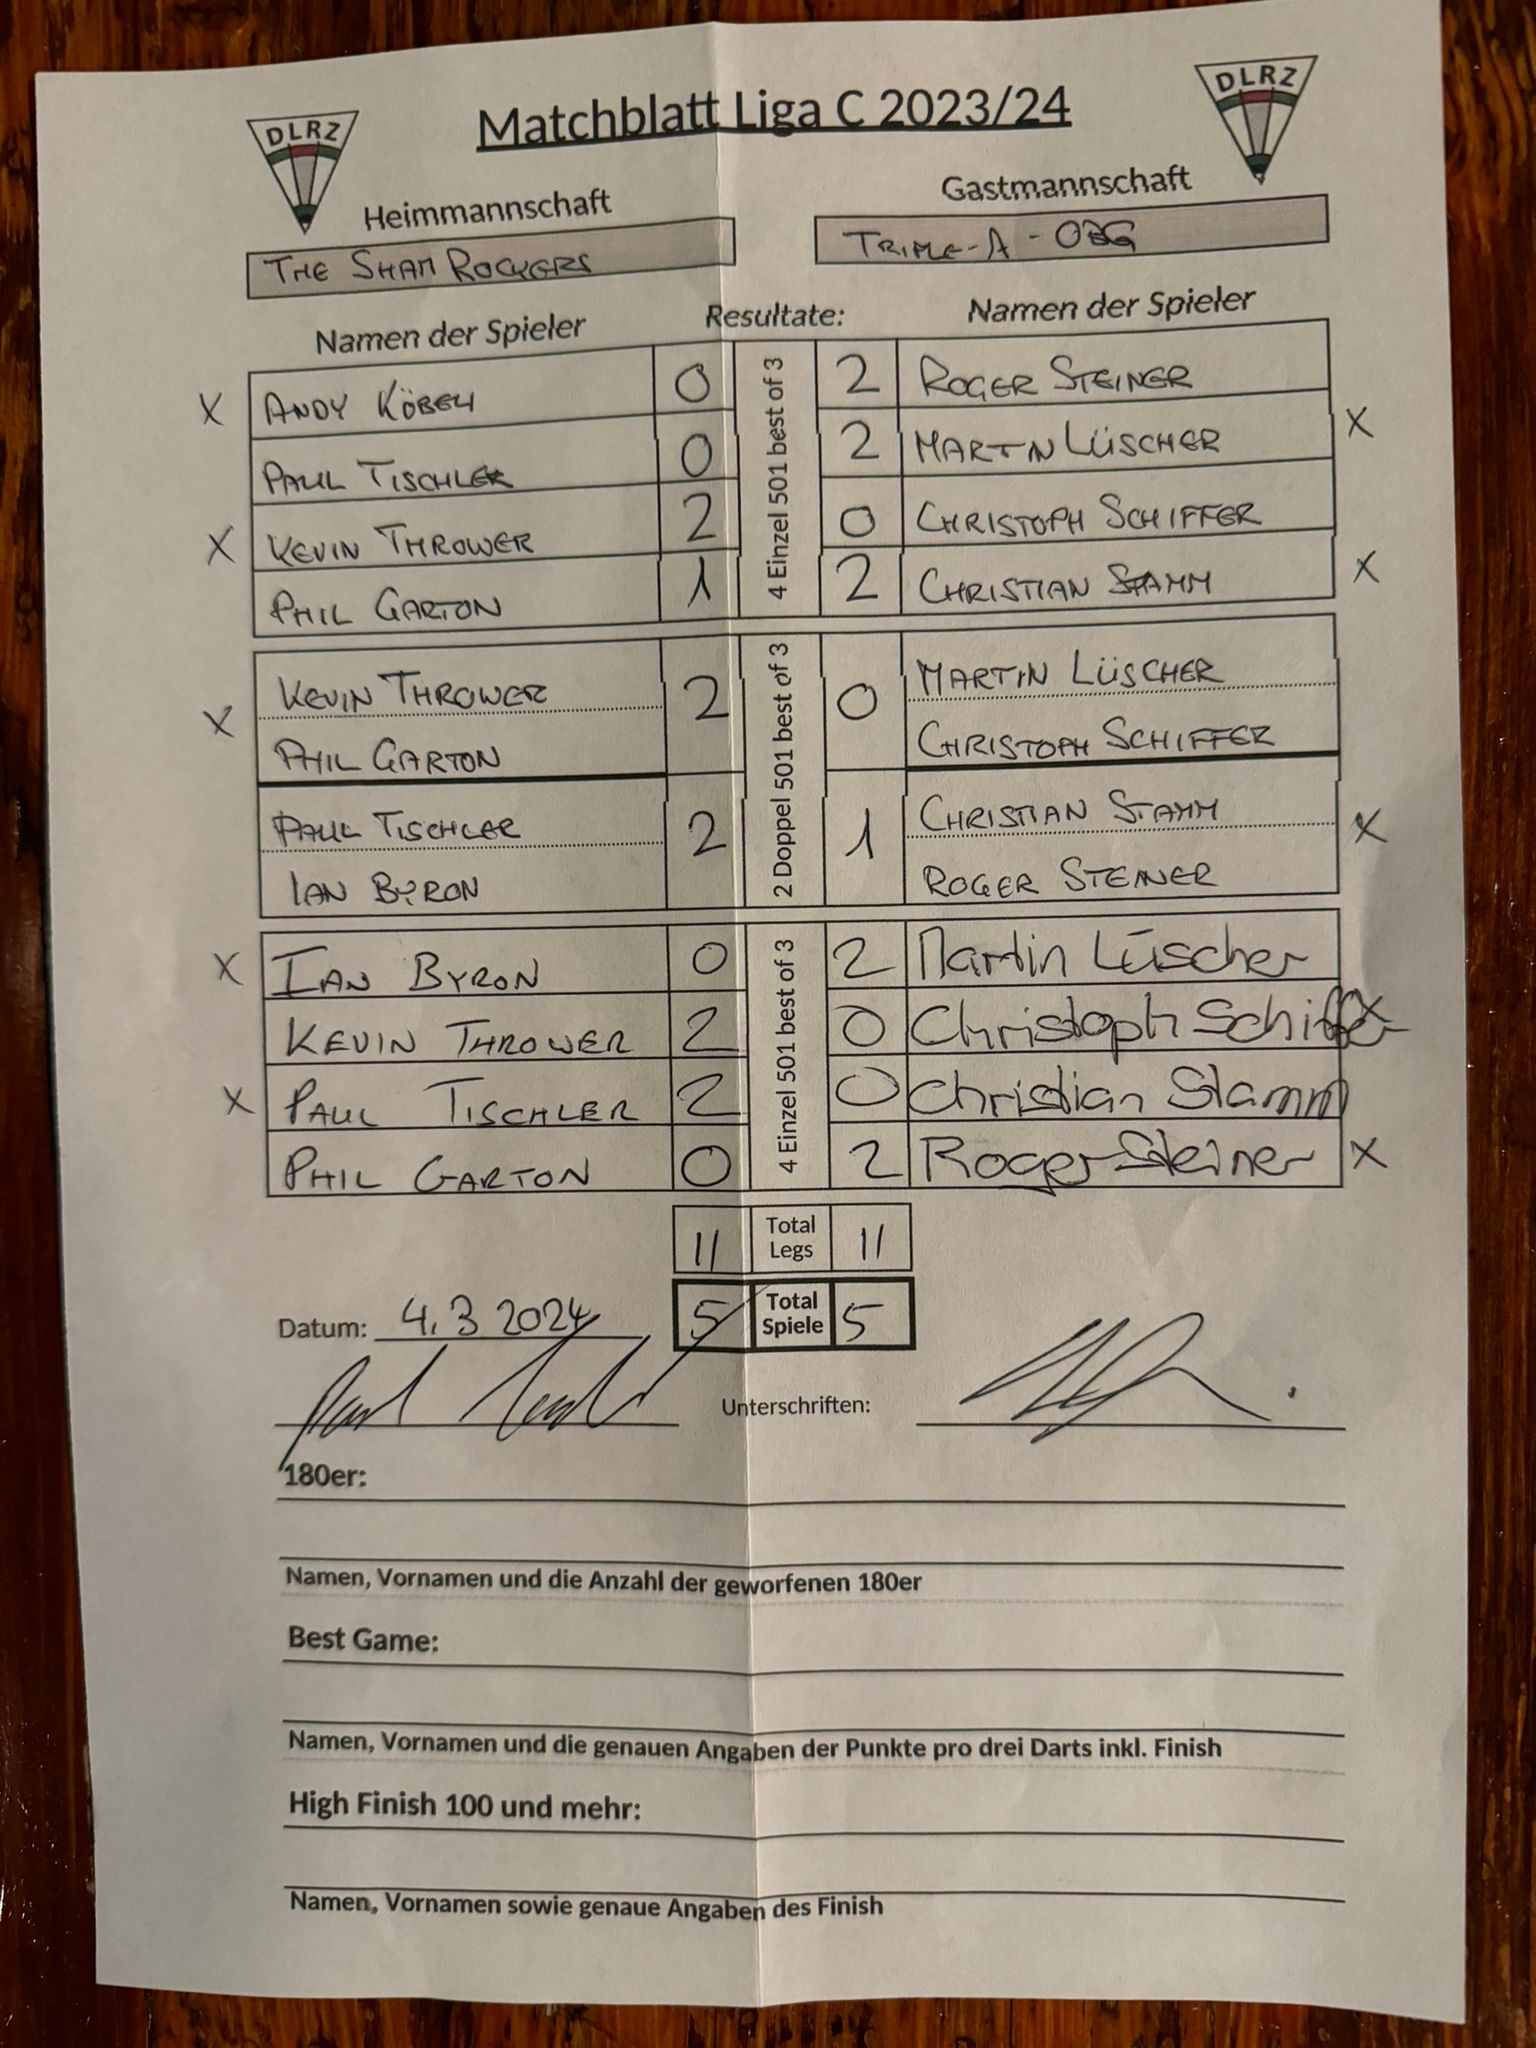 DLRZ Matchblatt Liga C 2023/24 DLRZ
Heimmannschaft Gastmannschaft
THE SHAM ROCKERS TRIPLE-A - OBG
Namen der Spieler Resultate: Namen der Spieler
4 Einzel 501 best of 3
X ANDY KÖBELI 0 2 ROGER STEINER
PAUL TISCHLER 0 2 MARTIN LÜSCHER X
X KEVIN THROWER 2 0 CHRISTOPH SCHIFFER
PHIL GARTON 1 2 CHRISTIAN STAMM X
2 Doppel 501 best of 3
X KEVIN THROWER 2 0 MARTIN LÜSCHER
PHIL GARTON CHRISTOPH SCHIFFER
PAUL TISCHLER 2 1 CHRISTIAN STAMM X
IAN BYRON ROGER STEINER
4 Einzel 501 best of 3
X IAN BYRON 0 2 Martin Lüscher
KEVIN THROWER 2 0 Christoph Schiffer X
X PAUL TISCHLER 2 0 Christian Stamm
PHIL GARTON 0 2 Roger Steiner X
11 Total Legs 11
Datum: 4.3 2024 5 Total Spiele 5
Unterschriften:
180er:
Namen, Vornamen und die Anzahl der geworfenen 180er
Best Game:
Namen, Vornamen und die genauen Angaben der Punkte pro drei Darts inkl. Finish
High Finish 100 und mehr:
Namen, Vornamen sowie genaue Angaben des Finish